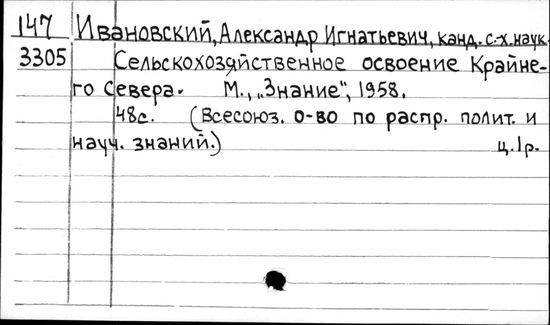 147 Ивановский, Александр Игнатьевич, канд. с.-х. наук.
3305 Сельскохозяйственное освоение Крайне-
го Севера. М., „Знание", 1958.
48с. (Всесоюз. о-во по распр. полит. и
науч. знаний.) ц. 1р.